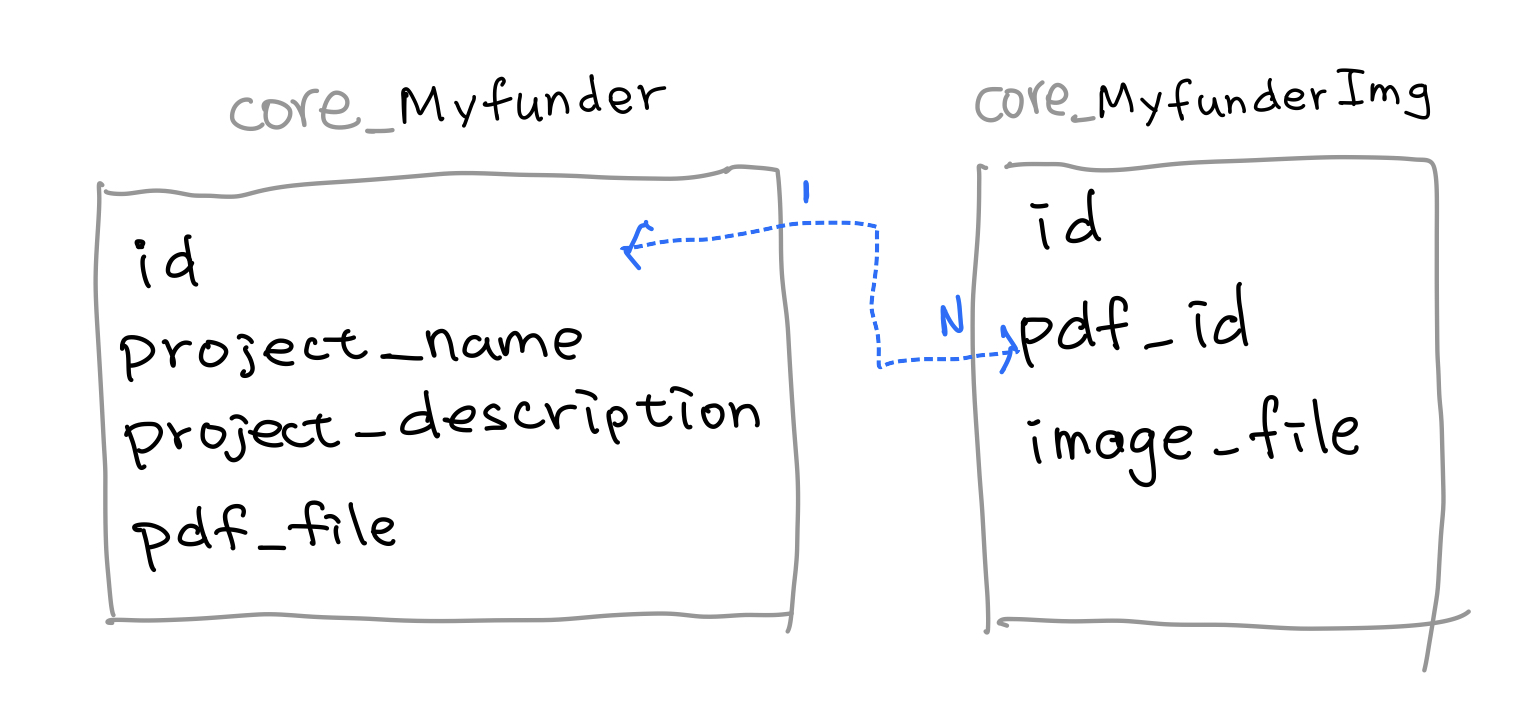 core_Myfunder
id
project_name
project_description
pdf_file
1
N
core_MyfunderImg
id
pdf_id
image_file